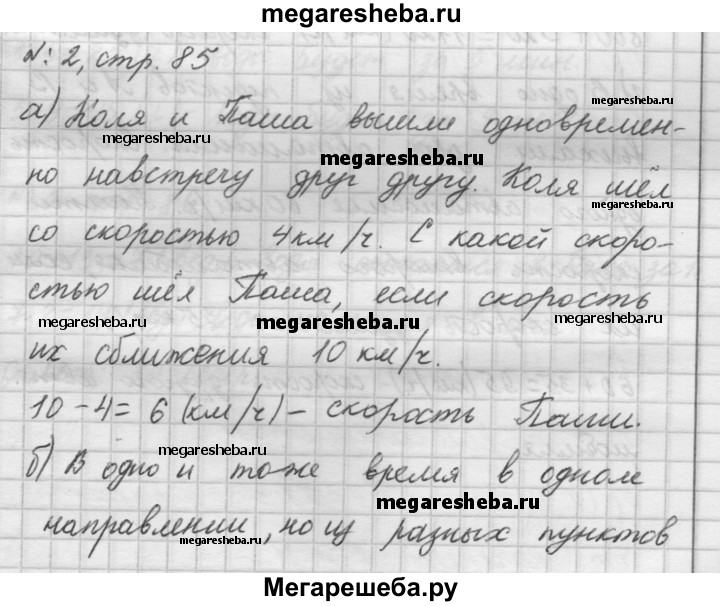 megaresheba.ru
№ 2, стр. 85
а) Коля и Паша вышли одновремен-
megaresheba.ru
megaresheba.ru
но навстречу друг другу. Коля шёл
megaresheba.ru
со скоростью 4 км/ч. С какой скоро-
стью шёл Паша, если скорость
megaresheba.ru megaresheba.ru megaresheba.ru
их сближения 10 км/ч.
10 - 4 = 6 (км/ч) - скорость Паши.
megaresheba.ru
б) В одно и то же время в одном
megaresheba.ru
направлении, но из разных пунктов
megaresheba.ru megaresheba.ru
Мегарешеба.ру